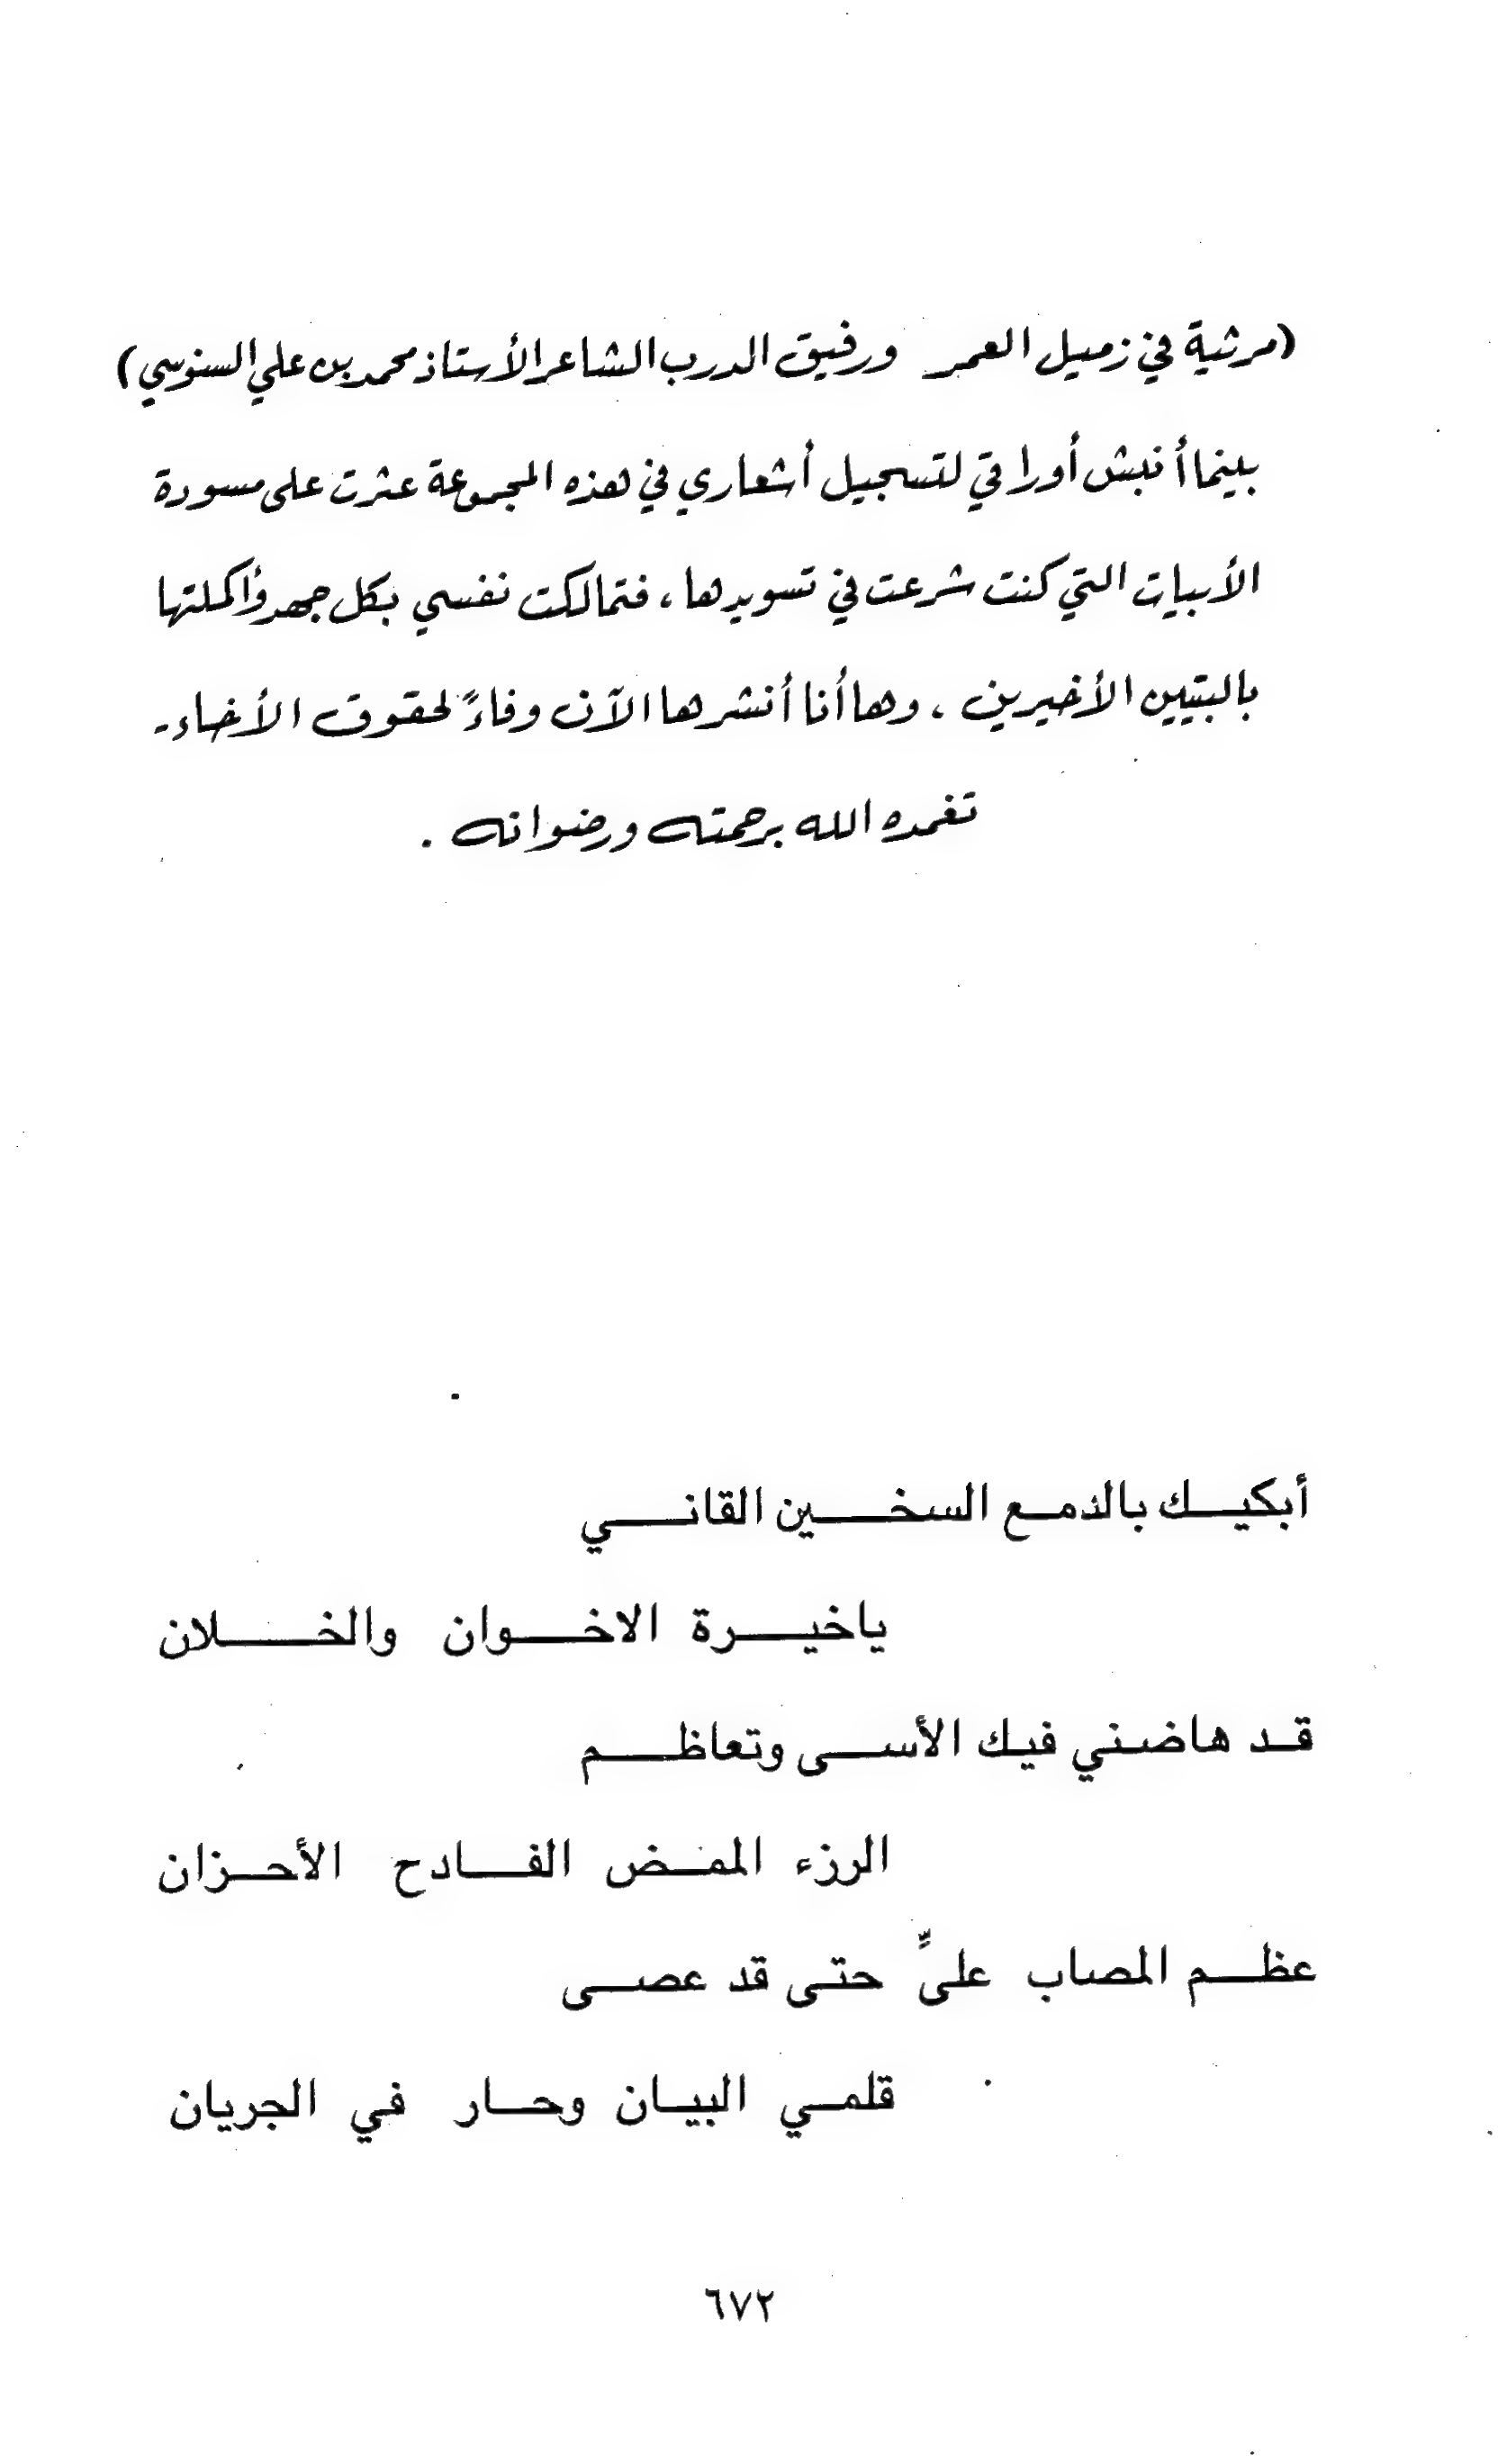 (مرثية في زميل العمر ورفيق الدرب الشاعر الأستاذ محمد بن علي السنوسي)
بينما أنبش أوراقي لتسجيل أشعاري في هذه المجموعة عثرت على مسودة
الأبيات التي كنت شرعت في تسويدها، فتمالكت نفسي بكل جهد وأكملتها
بالبتيين الأخيرين، وها أنا أنشرها الآن وفاءً لحقوق الأخاء -
تغمده الله برحمته ورضوانه .
أبكيك بالدمع السخين القاني
ياخيرة الاخوان والخلان
قد هاضني فيك الأسى وتعاظم
الرزء الممض الفادح الأحزان
عظم المصاب علىَّ حتى قد عصى
قلمي البيان وحار في الجريان
٦٧٢